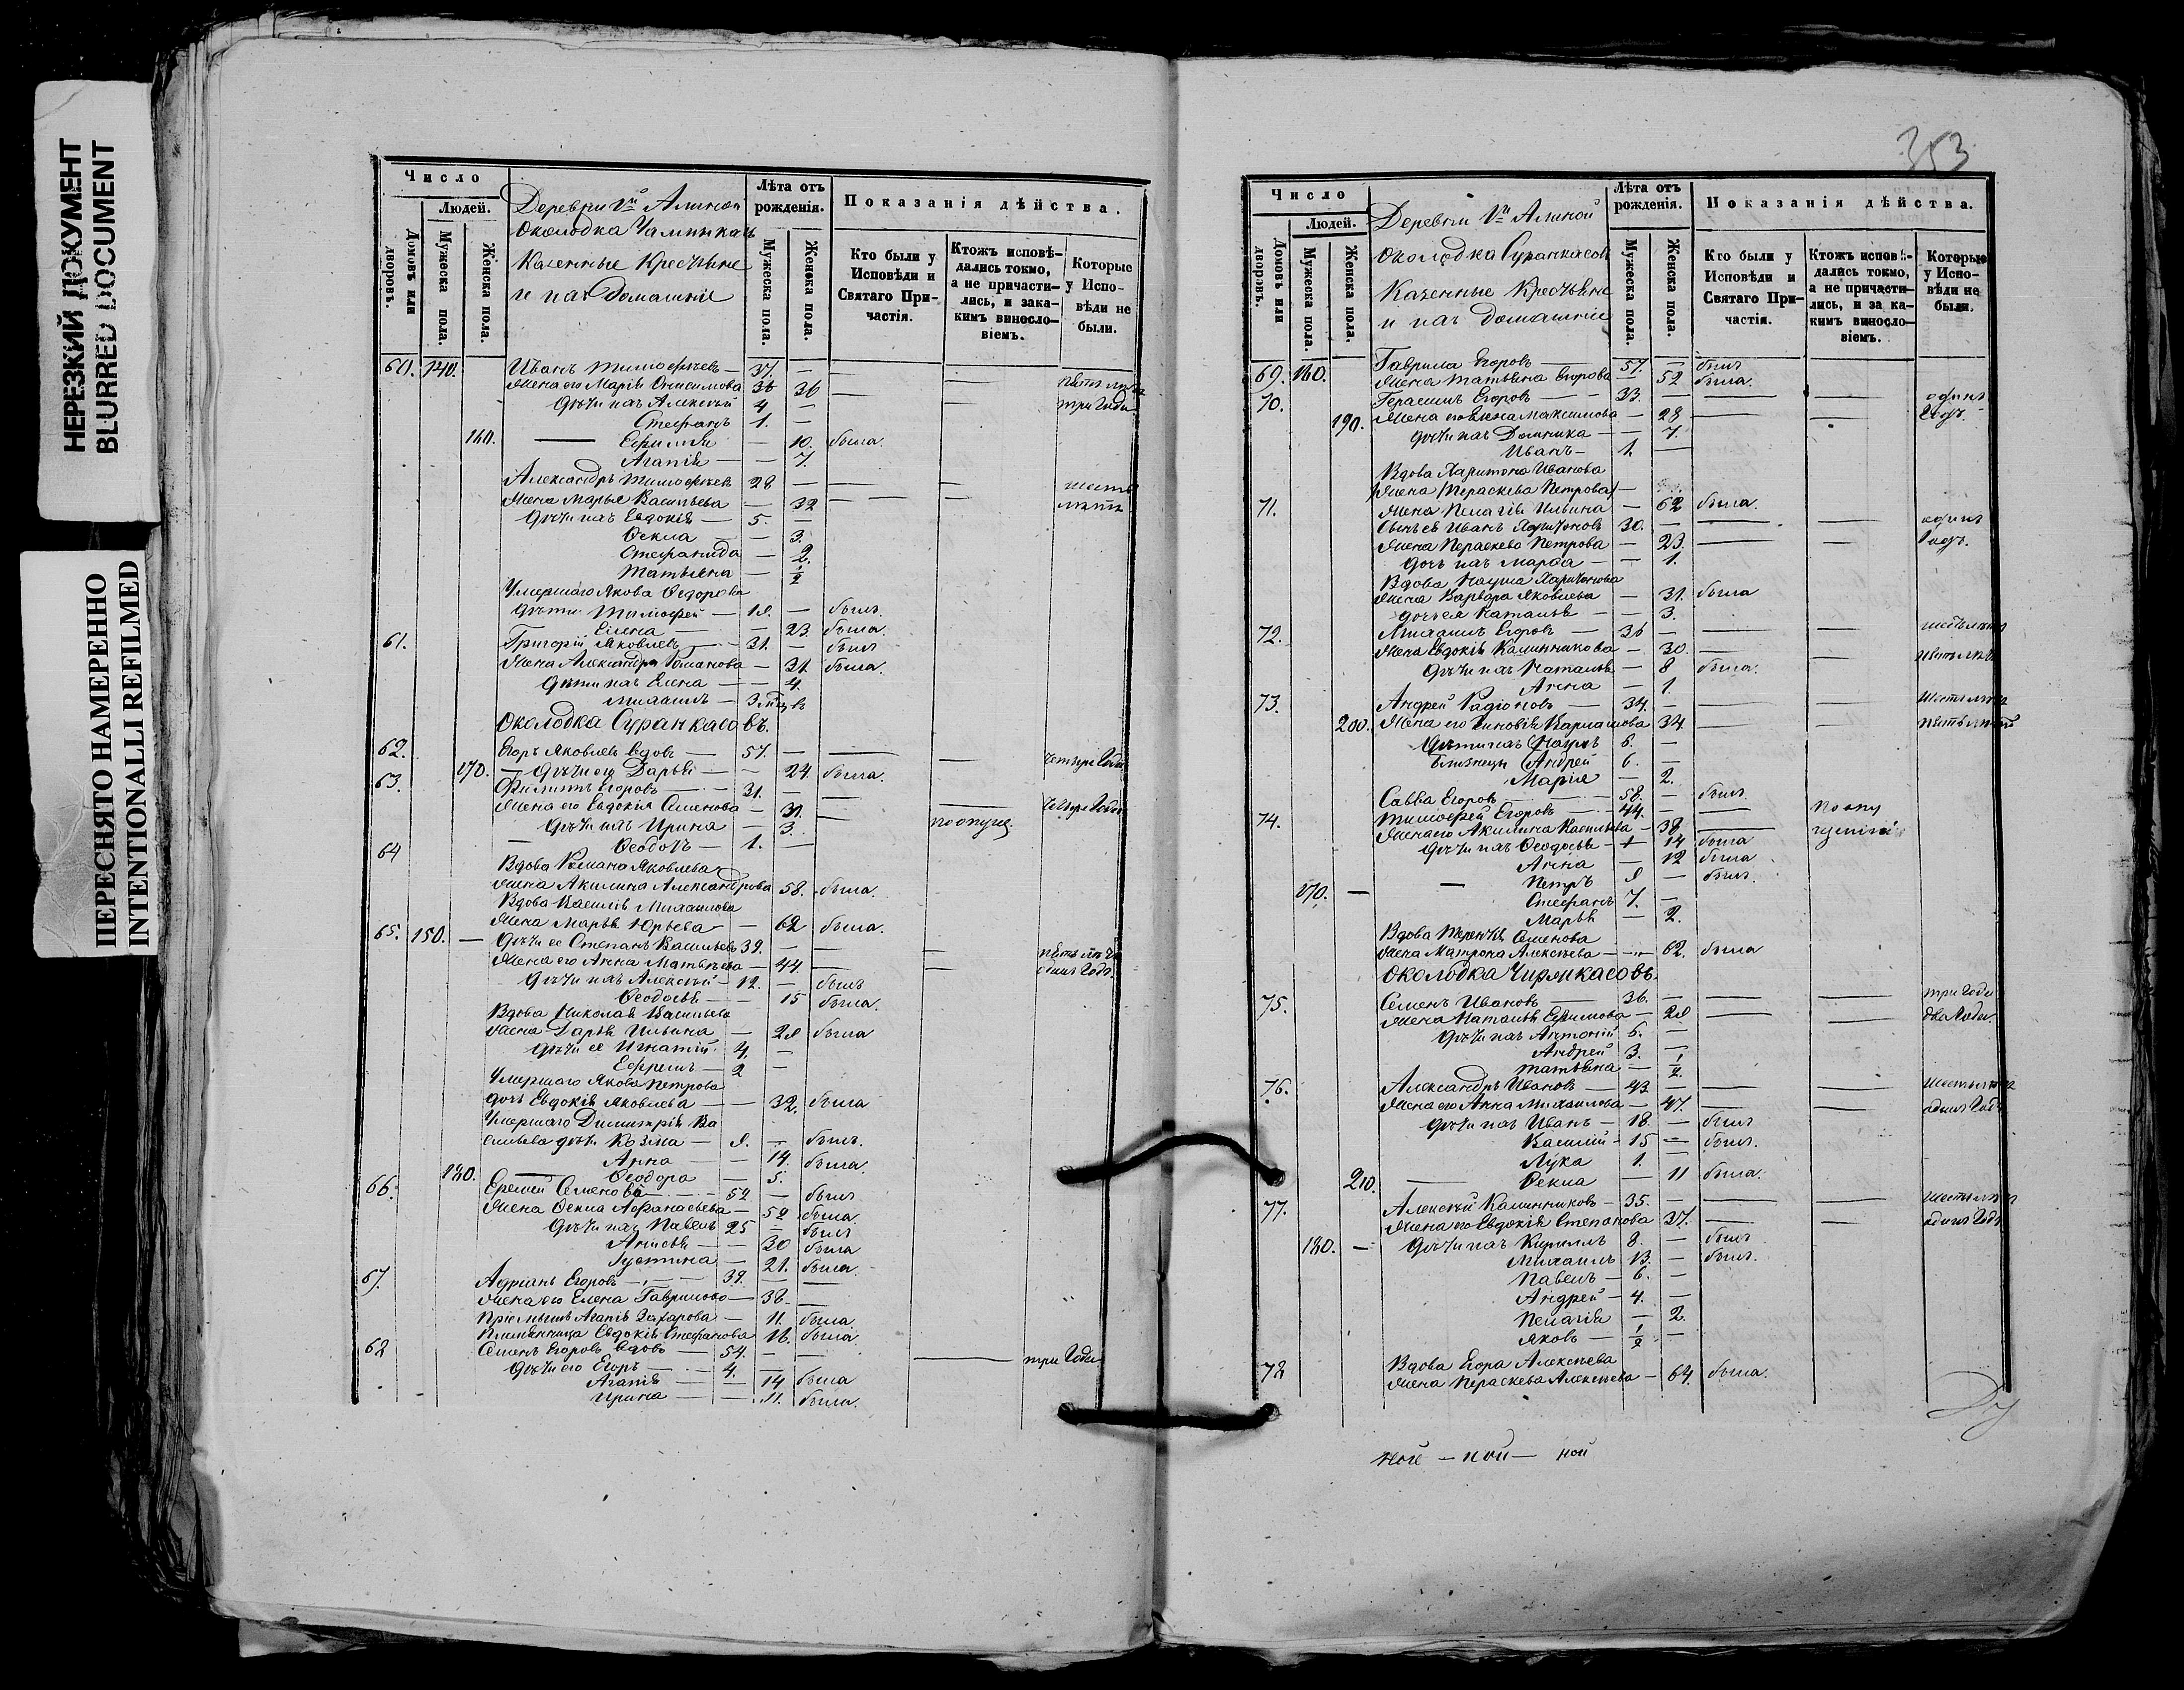 НЕРЕЗКИЙ ДОКУМЕНТ
BLURRED DOCUMENT
ПЕРЕСНЯТО НАМЕРЕННО
INTENTIONALLI REFILMED
Число
Людей.
Домовъ или дворовъ.
Мужеска пола.
Женска пола.
Деревни
Околодка
Казенные Крестьяне
и ихъ домашніе
Лѣта отъ рожденія.
Мужеска пола.
Женска пола.
Показанія дѣйства.
Кто были у Исповѣди и Святаго Причастія.
Ктожъ исповѣдались токмо, а не причастились, и закакимъ винословіемъ.
Которые у Исповѣди не были.
60. 140. Иванъ Тимофѣевъ — 37. —
Жена его Марія Онисимова 36 36
Дѣти ихъ Алексѣй 4 — три года
Стефанъ 1. —
160. — Ефимія — 10. была.
Агапія — 7.
Александръ Тимофѣевъ 28 —
Жена Марья Васильева — 32
Дѣти ихъ Евдокія — 5. —
Ѳекла — 3.
Стефанида — 2.
Татьяна — ½
Умершаго Якова Ѳедорова
дѣти Тимофей — 19 — былъ
Елена — 23. была.
61. Григорій Яковлевъ — 31. — былъ
Жена Александра Романова — 31. была.
Дѣти ихъ Елена — 4.
Михаилъ — 3
Околодка Суранкасовъ.
62. Егоръ Яковлевъ вдовъ — 57. — четыре года
170. — Дѣти его Дарья — 24. была.
63. Филиппъ Егоровъ — 31. —
Жена его Евдокія Семенова — 31. четыре года
Дѣти ихъ Ирина — 3.
— Ѳеодотъ — 1. —
64 Вдова Романа Яковлева
жена Акилина Александрова 58. была.
Вдова Василія Михаилова
65. 150. — Жена Марья Юрьева — 62 была.
Дѣти ее Степанъ Васильевъ 39. —
Жена его Анна Матвѣева — 44. одинъ годъ.
Дѣти ихъ Алексѣй — 12. — былъ
Ѳеодосья — 15 была.
Вдова Николая Васильева
жена Дарья Ильина — 29 была
Дѣти ее Игнатій 4. —
Ефремъ — 2 —
Умершаго Якова Петрова
дочь Евдокія Яковлева — 32. была
Умершаго Димитрія Ва
сильева дѣти Козма — 9. — былъ.
Анна — 14. была.
180. — Ѳеодора — 5.
66. Еремей Семеновъ — 52. — былъ
Жена Ѳекла Афанасьева — 52 была
Дѣти ихъ Павелъ 25 — былъ
Анисья — 30 была
Густина — 21. была.
67. Адріанъ Егоровъ — 39. —
Жена его Елена Гаврилова — 38. —
Пріемышъ Агапія Захарова — 11. была
Племянница Евдокія Стефанова 16. была
68 Семенъ Егоровъ вдовъ — 54. — три года
Дѣти его Егоръ — 4. —
Агапія — 14 была
Ирина — 11. была.
353
Число
Людей.
Домовъ или дворовъ.
Мужеска пола.
Женска пола.
Деревни
Околодка Суранкасовъ
Казенные Крестьяне
и ихъ домашніе
Лѣта отъ рожденія.
Мужеска пола.
Женска пола.
Показанія дѣйства.
Кто были у Исповѣди и Святаго Причастія.
Ктожъ исповѣдались токмо, а не причастились, и за какимъ винословіемъ.
Которые у Исповѣди не были.
69. 160. Гаврила Егоровъ — 57. — былъ
Жена Татьяна Егорова — 52 была.
70. Герасимъ Егоровъ — 33. — одинъ
190. Жена его Елена Максимова — 28 — годъ.
Дѣти ихъ Домника — 7.
Иванъ — 1. —
Вдова Харитона Иванова
жена (Параскева Петрова) —
71. жена Пелагія Ильина — 62 была.
Сынъ ея Иванъ Харитоновъ 30. — одинъ
Жена Параскева Петрова — 23. годъ.
Дочь ихъ Марфа — 1.
Вдова Наума Харитонова
жена Варвара Яковлева — 31. была
дочь ея Наталья — 3.
72. Михаилъ Егоровъ — 36 —
Жена Евдокія Калинникова — 30.
Дѣти ихъ Наталья — 8 была.
Анна — 1.
73. Андрей Радіоновъ — 34. —
200. Жена его Зиновія Карпалова 34.
Дѣти ихъ Наумъ 6. —
близнецы Андрей 6. —
Марія — 2.
Савва Егоровъ — 58. — былъ.
74. Тимофей Егоровъ — 44. — по опу
Жена его Акилина Васильева — 38 — щенію
Дѣти ихъ Ѳеодосья — 14 была
Анна — 12 была
170. — Петръ 9 — былъ.
Стефанъ 7. —
Марья — 2.
Вдова Терентія Семенова
жена Матрона Алексѣева — 62. была
Околодка Чирикасовъ.
75. Семенъ Ивановъ — 36. — три года
Жена Наталья Ефимова — 29 — два года.
Дѣти ихъ Антоній 6. —
Андрей 3. —
Татьяна — ½
76. Александръ Ивановъ — 43 —
Жена его Анна Михаилова — 47. одинъ годъ
Дѣти ихъ Иванъ — 18. — былъ
Василій — 15 — былъ.
Лука 1. —
210. — Ѳекла — 11 была.
77. Алексѣй Калинниковъ — 35. —
Жена его Евдокія Степанова 37. одинъ годъ
180. — Дѣти ихъ Кириллъ 8. — былъ
Михаилъ 13. — былъ.
Павелъ — 6. —
Андрей — 4. —
Пелагія — 2.
Яковъ — ½ —
78 Вдова Егора Алексѣева
жена Параскева Алексѣева — 64. была.
ной — ной — ной